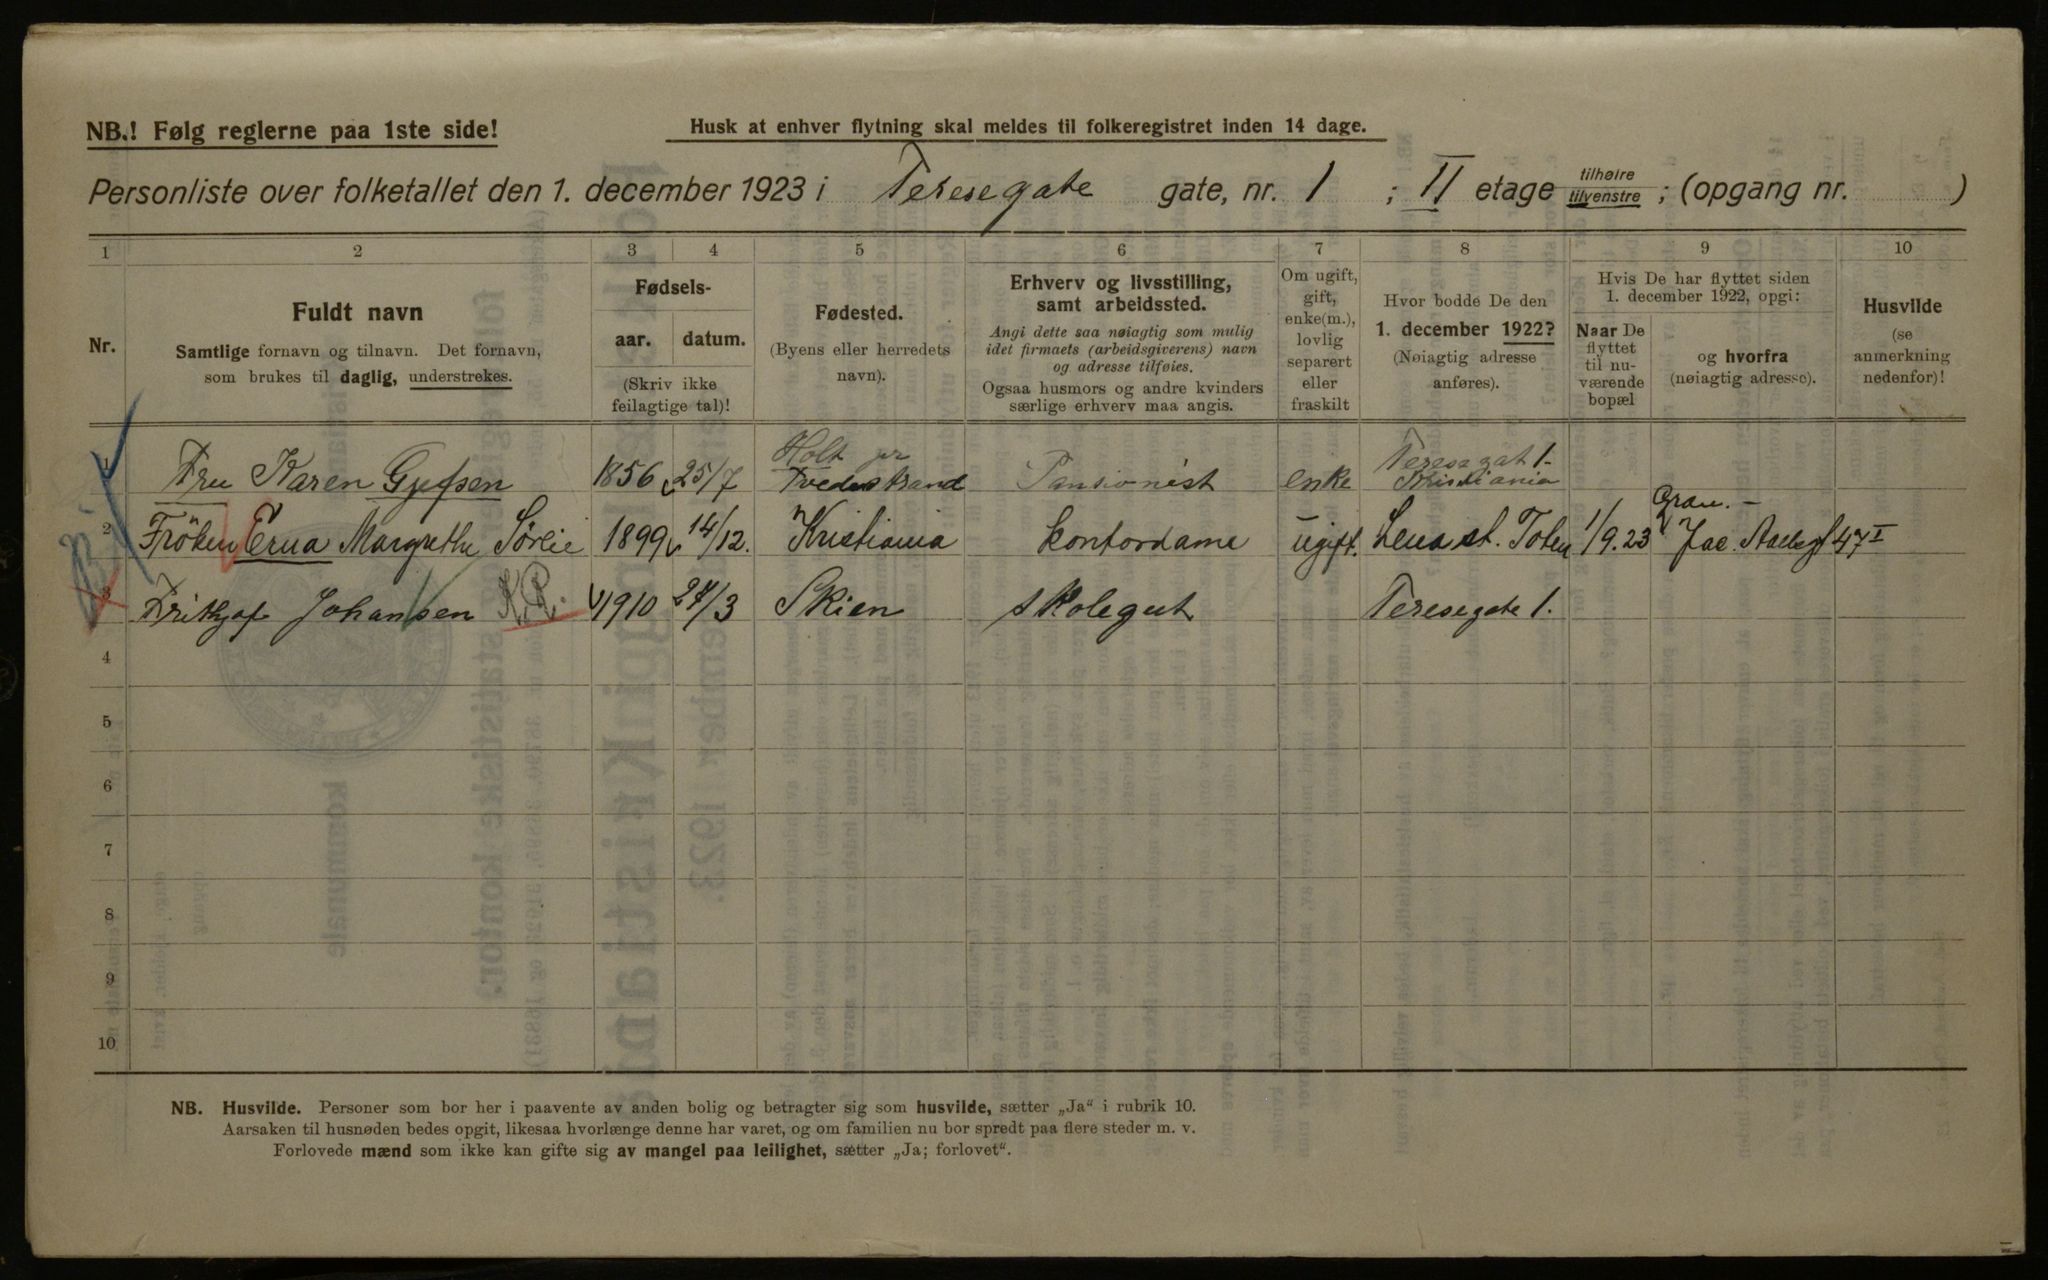 NB.! Følg reglerne paa 1ste side!
Husk at enhver flytning skal meldes til folkeregistret inden 14 dage.
Personliste over folketallet den 1. december 1923 i Teresegate gate, nr. 1 ; II etage tilhøire tilvenstre ; (opgang nr. )
1 2 3 4 5 6 7 8 9 10
Nr.
Fuldt navn
Samtlige fornavn og tilnavn. Det fornavn,
som brukes til daglig, understrekes.
Fødsels-
aar. datum.
(Skriv ikke
feilagtige tal)!
Fødested.
(Byens eller herredets
navn).
Erhverv og livsstilling,
samt arbeidssted.
Angi dette saa nøiagtig som mulig
idet firmaets (arbeidsgiverens) navn
og adresse tilføies.
Ogsaa husmors og andre kvinders
særlige erhverv maa angis.
Om ugift,
gift,
enke(m.),
lovlig
separert
eller
fraskilt
Hvor bodde De den
1. december 1922?
(Nøiagtig adresse
anføres).
Hvis De har flyttet siden
1. december 1922, opgi:
Naar De
flyttet
til nu-
værende
bopæl
og hvorfra
(nøiagtig adresse).
Husvilde
(se
anmerkning
nedenfor)!
1 Fru Karen Gjefsen 1856 25/7 Holt pr Tvedestrand Pansionist enke Teresegat 1. Kristiania
2 Fröken Erna Margrethe Sørlie 1899 14/12. Kristiania kontordame ugift. Lena st. Toten 1/9.23 Jac. Aallsgt 47 I
3 Frithjof Johansen K.R. 1910 27/3 Skien skolegut Teresegate 1.
4
5
6
7
8
9
10
NB. Husvilde. Personer som bor her i paavente av anden bolig og betragter sig som husvilde, sætter „Ja“ i rubrik 10.
Aarsaken til husnøden bedes opgit, likesaa hvorlænge denne har varet, og om familien nu bor spredt paa flere steder m. v.
Forlovede mænd som ikke kan gifte sig av mangel paa leilighet, sætter „Ja; forlovet“.